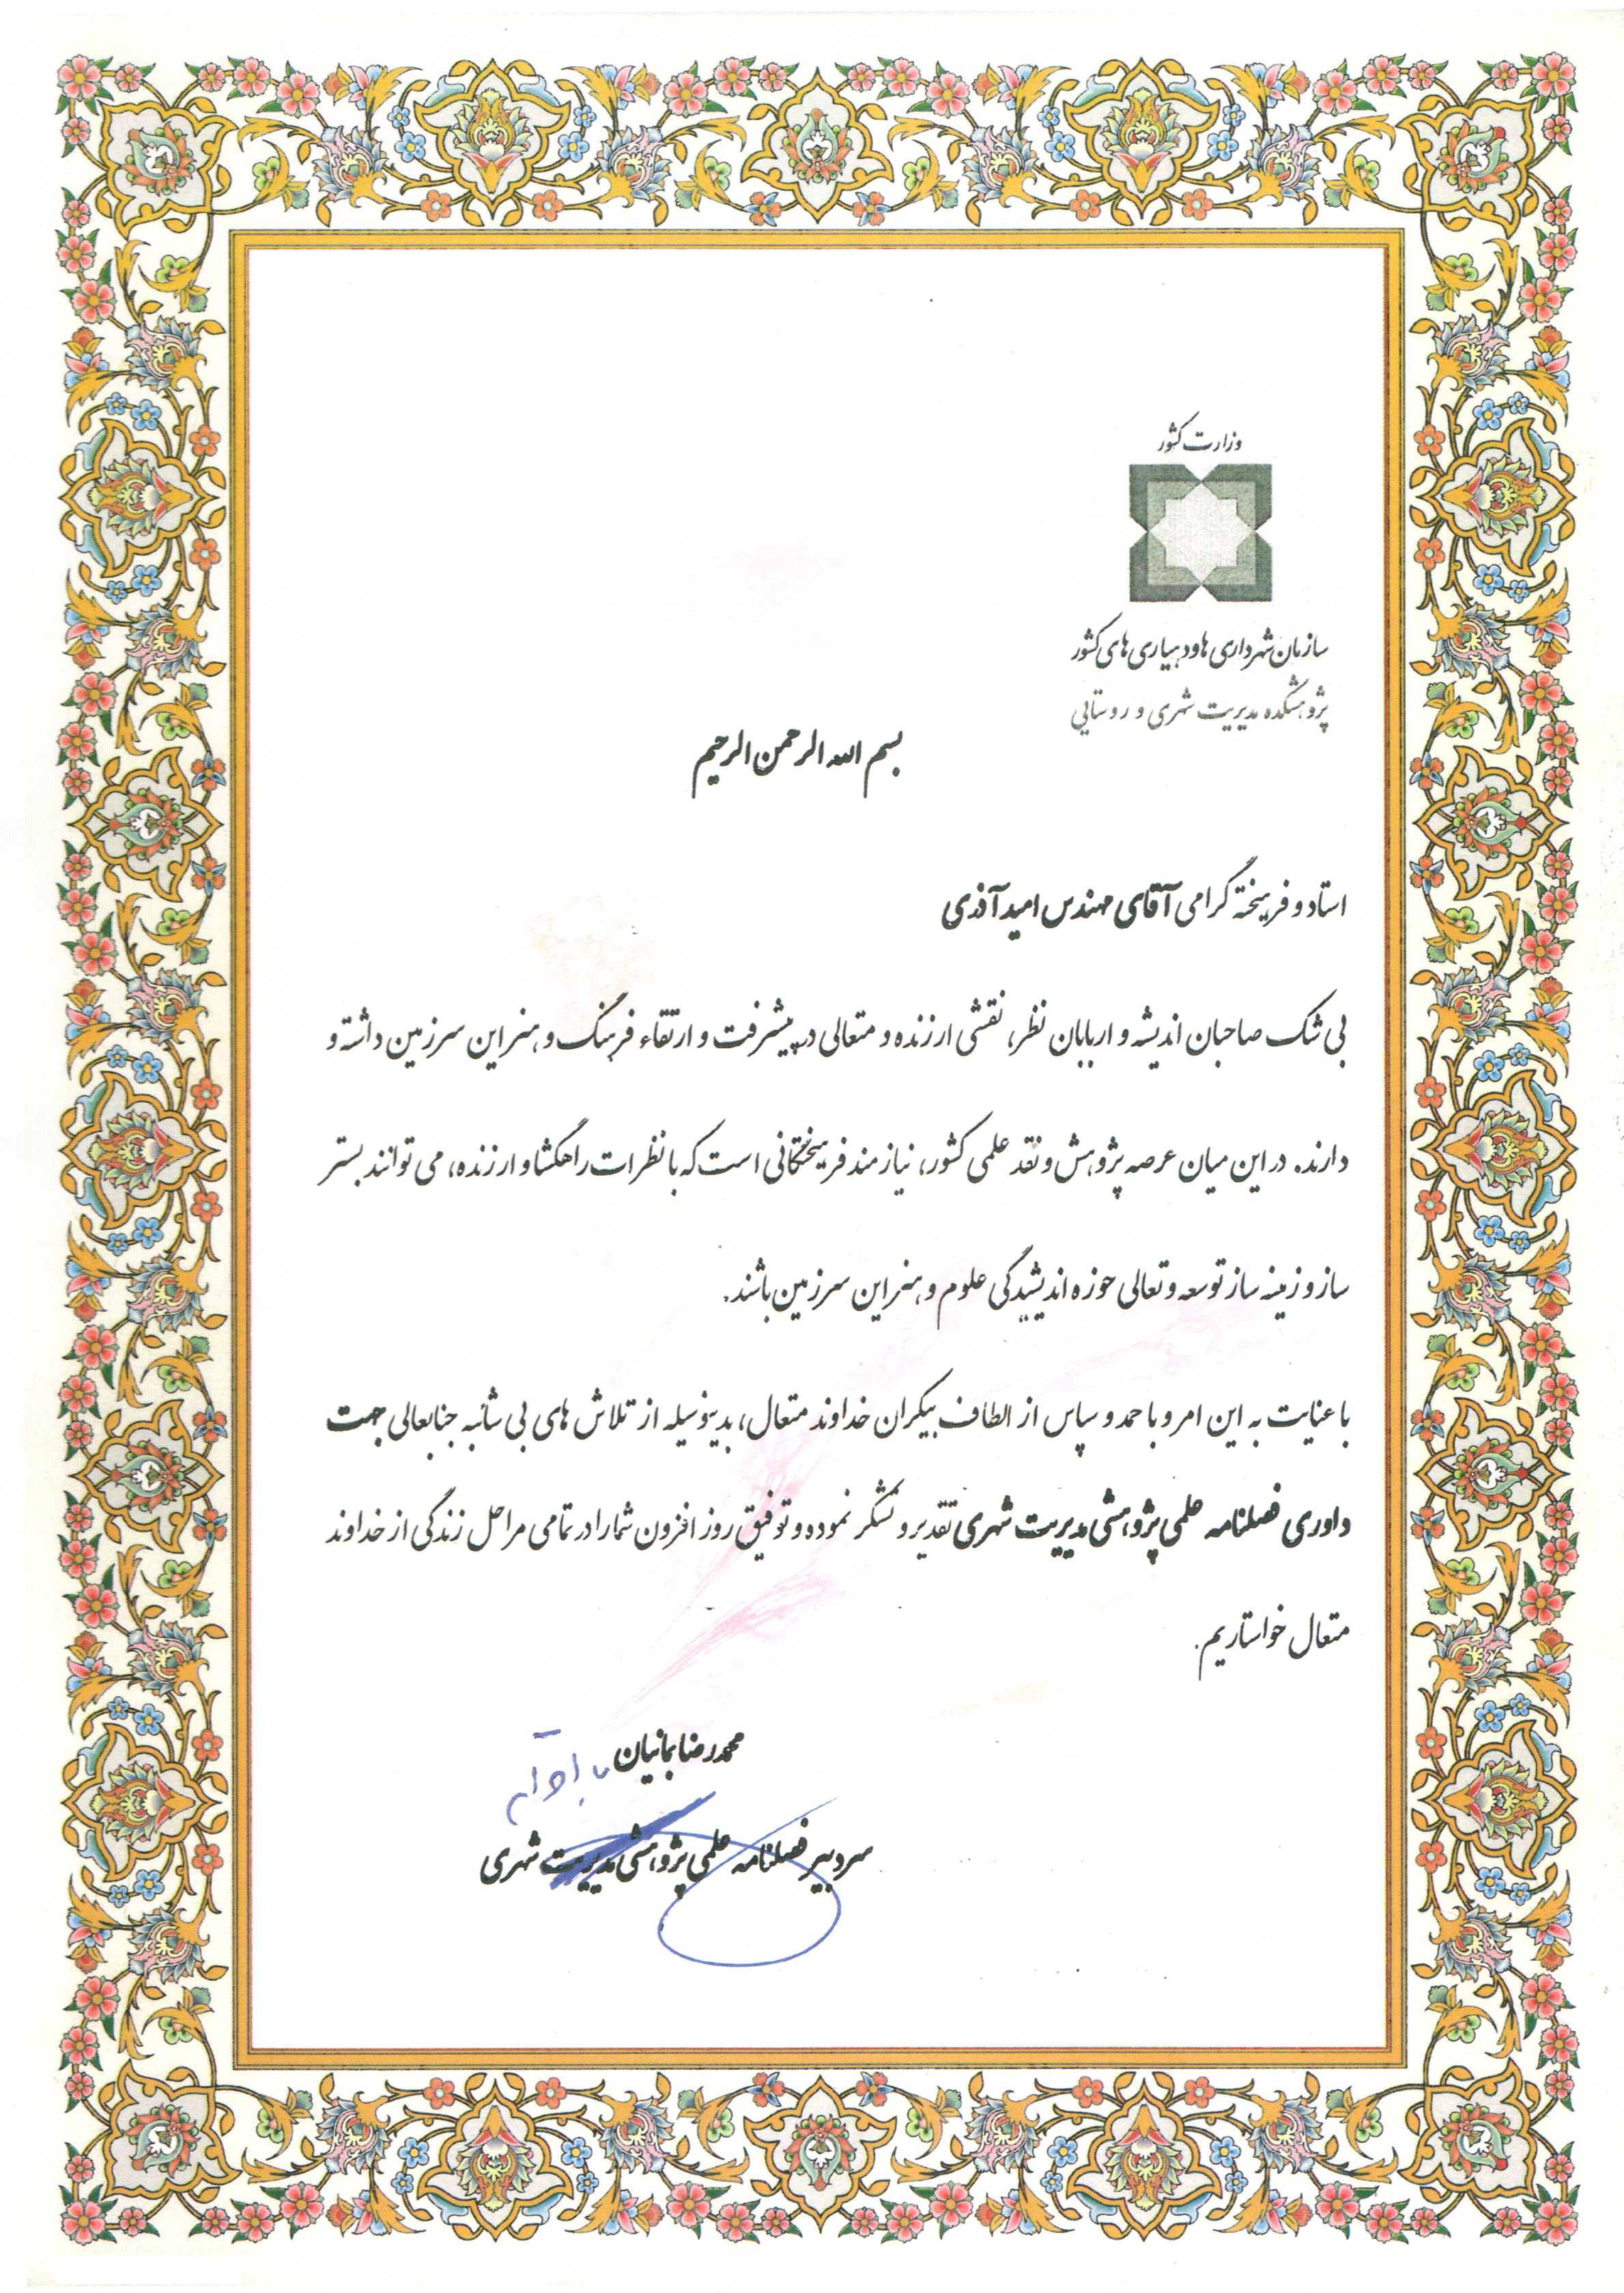 وزارت کشور
سازمان شهرداری ها و دهیاری های کشور
پژوهشکده مدیریت شهری و روستایی
بسم الله الرحمن الرحیم
استاد و فرهیخته گرامی آقای مهندس امید آذری
بی شک صاحبان اندیشه و اربابان نظر، نقشی ارزنده و متعالی در پیشرفت و ارتقاء فرهنگ و هنر این سرزمین داشته و
دارند. در این میان عرصه پژوهش و نقد علمی کشور، نیازمند فرهیختگانی است که با نظرات راهگشا و ارزنده، می توانند بستر
ساز و زمینه ساز توسعه و تعالی حوزه اندیشیدگی علوم و هنر این سرزمین باشند.
با عنایت به این امر و با حمد و سپاس از الطاف بیکران خداوند متعال، بدینوسیله از تلاش های بی شائبه جنابعالی جهت
داوری فصلنامه علمی پژوهشی مدیریت شهری تقدیر و تشکر نموده و توفیق روز افزون شما را در تمامی مراحل زندگی از خداوند
متعال خواستاریم.
محمدرضا بمانیان با احترام
سردبیر فصلنامه علمی پژوهشی مدیریت شهری